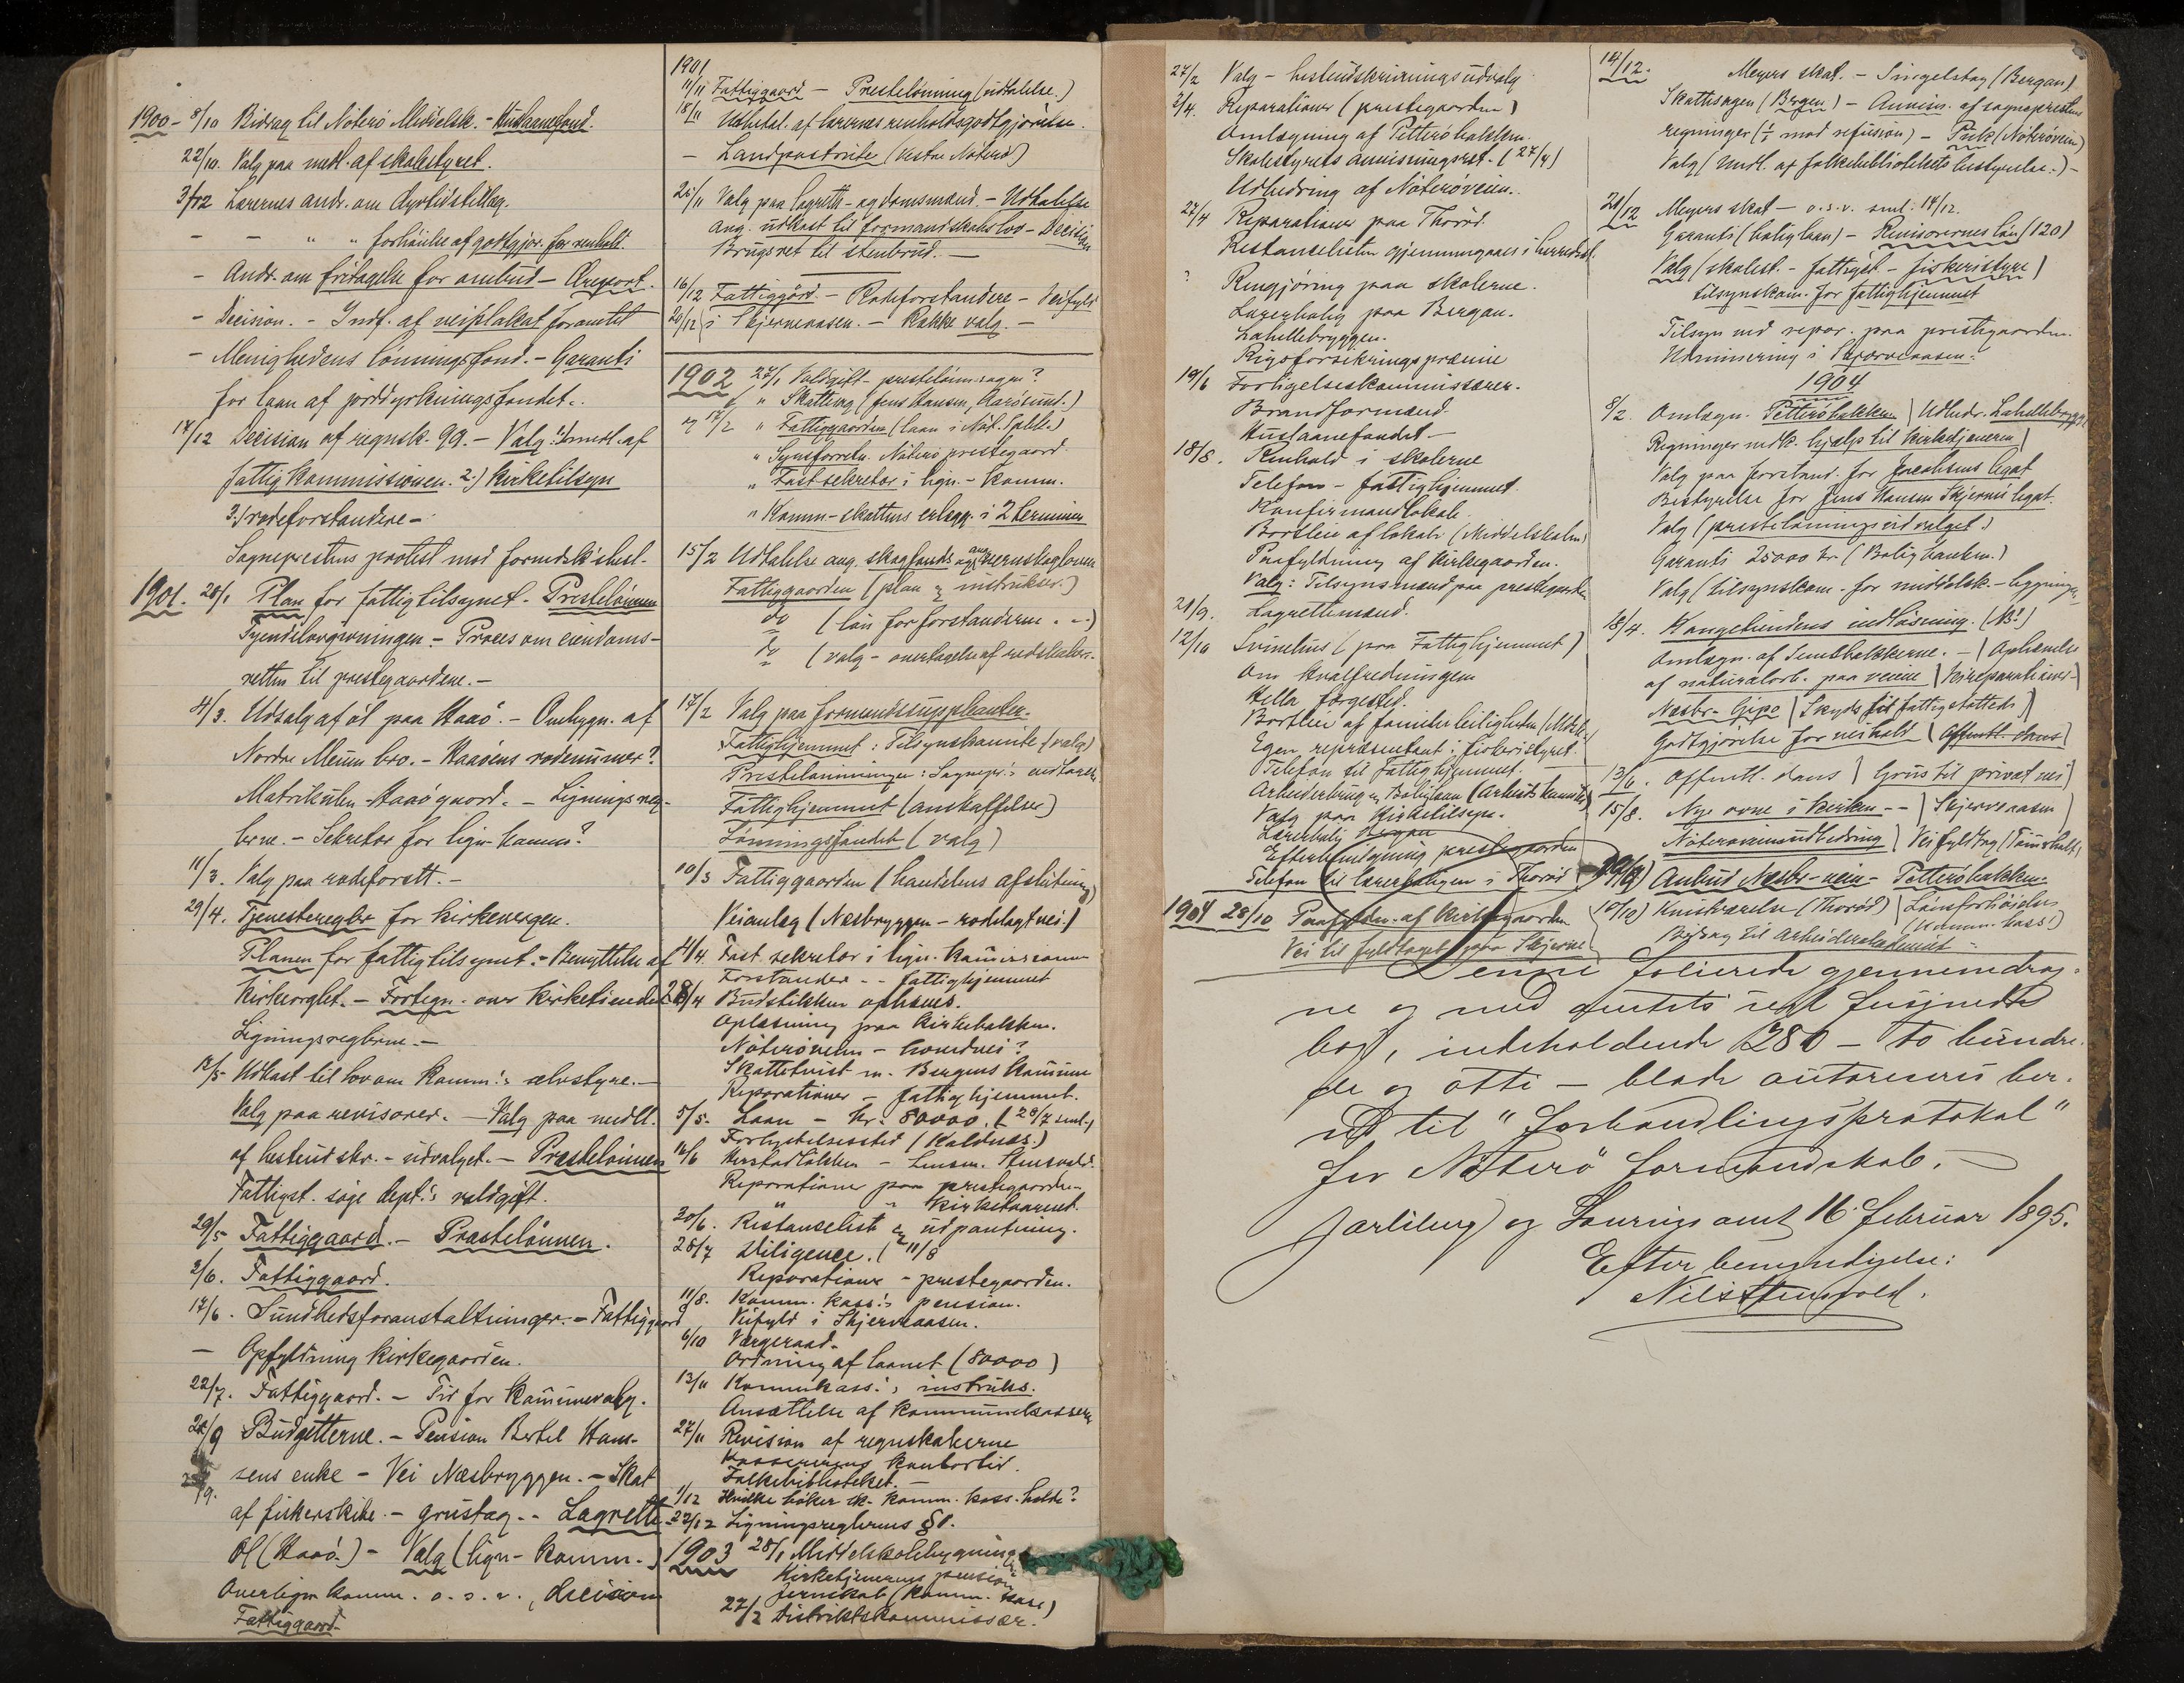 1900 - 8/10 Bidrag til Nøterø Middelsk. - Husbankfond.
22/10. Valg paa medl. af skolestyret.
3/12 Lærernes andr. om dyrtidstillæg.
- - " " forhøielse af godtgjør. for renhold.
- Andr. om fritagelse for ombud -
- Decision. - Indf. af veiplakat foramtet
- Menighedens lønningsfond. - Garanti
for laan af jorddyrkningsfondet.
14/12 Decision af regnsk. 99. - Valg: 1) medl. af
fattigkommissionen. 2) Kirketilsyn
3.) rodeforstandere -
Sogneprestens protest mod formdsk's besl.
1901. 28/1 Plan for fattigtilsynet - Presteløinnen
- Proces om eiendoms-
retten til prestegaardene. -
4/3. Udsalg af øl paa Haaø. - Ombygn. af
Nordre Meum bro. - Haaøens rodenummer?
Matrikulen - Haaøgaard. - Ligningsreg-
lerne. - Sekretær for lign-komm?
11/3. Valg paa rodeforstt. -
29/4. Tjenesteregler for kirkevergen.
Planen for fattigtilsynet. - Benyttelse af
kirkeorglet. - Fortegn. over kirketiender
Ligningsreglerne. -
12/5 Udkast til lov om komm:s selvstyre. -
Valg paa revisorer. - Valg paa medll.
af hesteudskr. - udvalget. - Presteløinnen
Fattigst. søge dept:s voldgift.
29/5 Fattiggaard. - Presteløinnen.
2/6. Fattiggaard.
17/6. Sundhedsforanstaltninger. - Fattiggaard
- Opfyldning kirkegaarden.
22/7. Fattiggaard. - Tid for kommunevalg.
20/9 Budgetterne. - Pension Bertel Han-
sens enke - Vei Næsbryggen. - Skat
af fiskerskibe. - grustag. - Lagrette
Øl (Haaø.) - Valg (lign-komm.)
Overlign komm. o. s. v., decision
Fattiggaard.
1901
11/11 Fattiggaard - Prestelønning (udtalelse.)
18/11 Udbetal. af lærernes renholdsgodtgjørelse.
- Landpostrute (Vestre Nøterø)
25/11 Valg paa lagrette- og domsmænd. - Udtalelse
ang. udkast til formandskabslov - Decision
Brugsret til stenbrud. -
16/12 Fattiggård. - Rodeforstandere - Veifyld
20/12 i Skjerveaasen. - Række valg. -
1902 27/1 Voldgift - presteløinnsagen?
" Skatteng (Jens Hansen, Aarøsund.)
17/2 " Fattiggaarden (laan i Nøt. Spbk.)
" Synsforretn. Nøterø prestegaard.
" Fast sekretær i lign. - komm.
" Komm-skattens erlegg. i 2 terminer
15/2 Udtalelse ang. skogfonds og værneskogloven
Fattiggaarden (plan & instrukser.)
do (løn for forstanderne. -)
do (valg - overtagelse af redskaber.
17/2 Valg paa formandssuppleanter.
Fattighjemmet: Tilsynskomite (valg)
Prestelønninger: Sognepr:s
Fattighjemmet (anskaffelser)
Lønningsfondet (valg)
10/3 Fattiggaarden (handelens afslutning)
Veianlæg (Næsbryggen - rodelagt vei)
4/4. Fast sekretær i lign. kommissionen
Forstander - - fattighjemmet
28/4 Budstikken ophæves.
Oplæsning paa kirkebakken.
Nøterøveien - hovedvei?
Skattetvist m. Bergens Kommune
Reparationer - fattighjemmet.
5/5. Laan - kr. 80000. (28/7 sml.)
Forlystelsessted (Kaldnes.)
16/6 - Lensm. Stensvold.
Reparationer paa prestegaarden
" " kirketaarnet.
30/6. Restanceliste & udpantning.
28/7 Diligence. (& 11/8
Reparationer - prestegaarden.
11/8. Komm. kass:s pension.
Veifyld i Skjerveaasen.
6/10 Vergeraad.
Ordning af laanet (80000)
13/11 Kommkass:s instruks.
Ansættelse af kommunekasserer
27/11 Revision af regnskaberne
Kassererens kontortid.
Folkebibliotheket. -
1/12 Hvilke bøker sk. komm. kass. holde?
22/12 Ligningsreglernes § 1.
1903 28/1 Middelskolebygning
Kirketjenerens pension
Jernskab (komm. kass)
27/2 Distriktskommissær.
27/2 Valg - hesteudskrivningsudvalg
2/4. Reparationer (prestegaarden)
Omlægning af Petterøbakken.
Skolestyrets anvisningsret. (27/4)
Udbedring af Nøterøveien.
27/4 Reparationer paa Thorød.
Restancelisten gjennemgaaes i herredsst.
? Rengjøring paa skolerne.
Lærerbolig paa Bergan.
Lahellebryggen.
præmie
19/6 Forligelseskommissærer.
Brandformænd.
Huslaanefondet -
18/8. Renhold i skolerne
Telefon - fattighjemmet.
Konfirmandlokale
Bortleie af lokale (Middelskolen)
Paafyldning af kirkegaarden.
Valg: Tilsynsmænd paa prestegaarden
21/9. Lagrettemænd.
12/10 Svinehus (paa Fattighjemmet)
Om hvalfredningen
Hella færgested.
Bortleie af familieleiligheden (Mdsk.)
Egen repræsentant i fiskeristyret.
Telefon til Fattighjemmet.
Arbeiderbrug & Boliglaan (Arbeids komite)
Valg paa kirketilsyn.
Lærerbolig Bergan
prestegaarden
Telefon til lærerboligen i Thorød
1904 28/10 Paafyldn. af kirkegaarden
Vei til fyldtaget paa Skjerve
14/12. Meyers skat. - Singelstag (Bergan)
Skattesagen (Brgen) - Anvisn. af sogneprestens
regninger (1/2 mod refusion) - Puk (Nøterøveien)
Valg (medl. af folkebibliotekets bestyrelse.) -
21/12 Meyers skat - o.s.v. sml. 14/12.
Garanti (boliglaan) - Revisorernes løn (120)
Valg (skolest. - fattigst. - fiskeristyre)
tilsynskom. for fattighjemmet
Tilsyn ved repar. paa prestegaarden.
Udminering i Skjerveaasen.
1904
8/2. Omlægn. Petterøbakken | Udbedr. Lahellebryggen
Regninger medk. hjælp til kirketjeneren |
Valg paa forstand. for Jacobsens legat
Bestyrelse for Jens Hansen Skjerves legat.
Valg (prestelønningsudvalget.)
Garanti 25000 kr (Boligbanken.)
Valg (tilsynskom. for middelsk. - bygningen
18/4. Kongetiendens indløsning. (B?)
Omlægn. af Semsbakkerne. - | Ophævelse
af naturalarb. paa veiene | Veireparationer -
Næsbr. - Gipø | Skyds for fattigstøttede |
Godtgjørelse for veihold | Offentl. dans |
13/6. Offentl. dans | Grus til privat vei |
15/8. Nye ovne i kirken - - | Skjerveaasen |
Nøterøveiens udbedring | Veifyldtag (Tømsholt)
19/9) Anbud Næsbr-vein - Petterøbakken.
10/10) Knistværelse (Thorød) | Lønsforhøielse
(komm. kass:)
Bidrag til Arbeiderakademiet -
Denne folierede gjennemdrag-
ne og med amtets segl forsynede
bog, indeholdende 280 - to hundre-
de og otti - blade autoriseres her-
ved til "Forhandlingsprotokol"
for Nøtterø formandskab. -
Jarlsberg og Laurvigs amt 16. februar 1895.
Efter bemyndigelse:
Nils Stensvold.